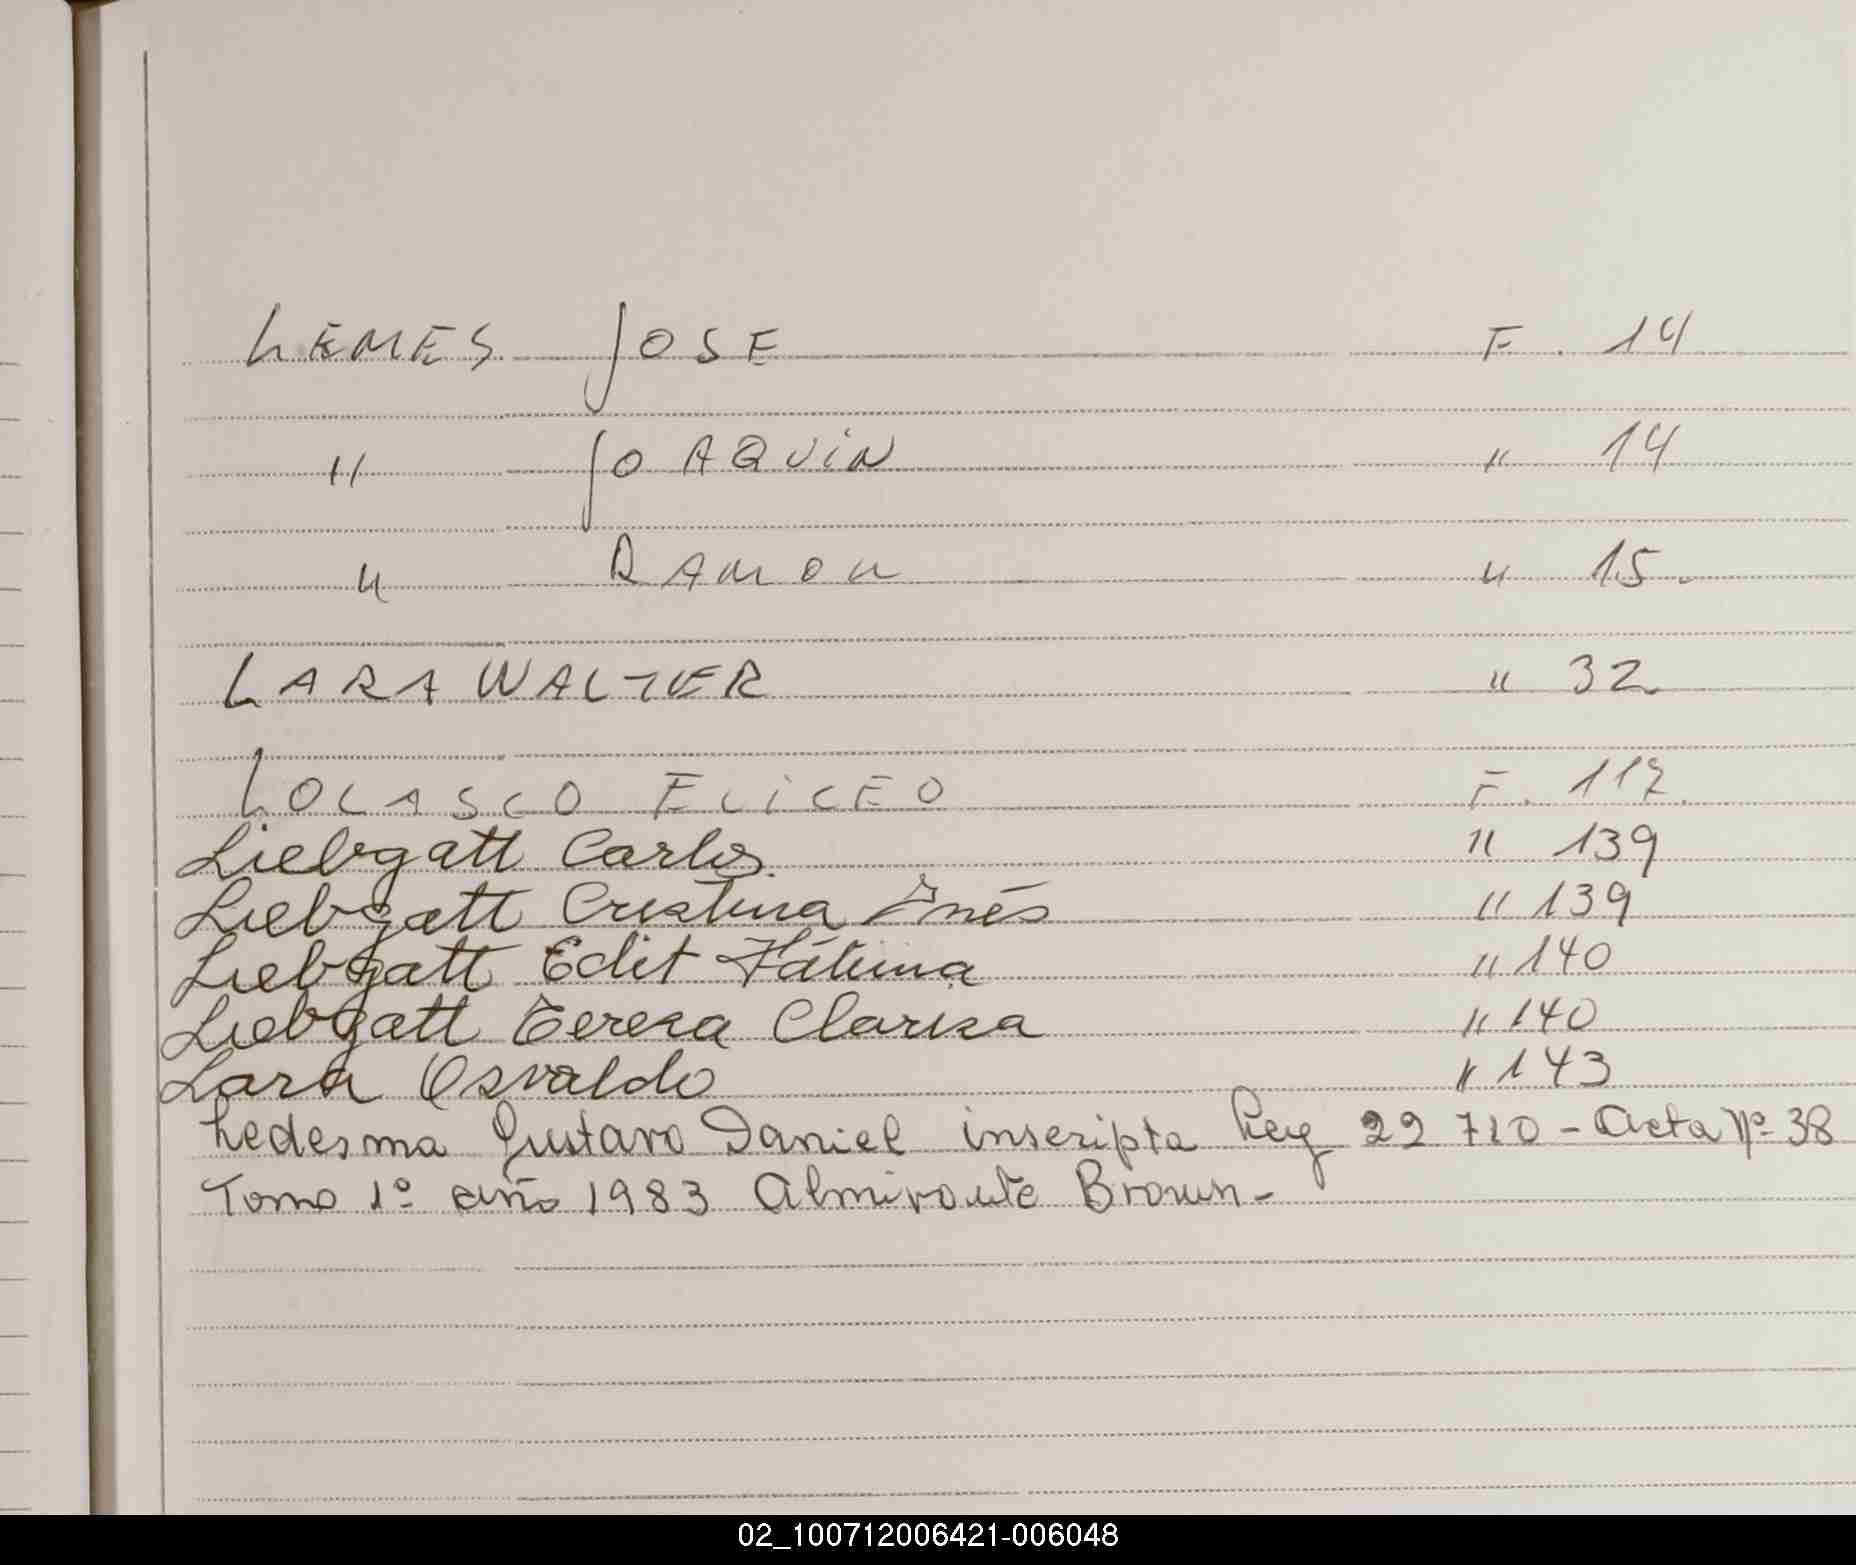 LEMES JOSE F. 14
" JOAQUIN " 14
" RAMON " 15.
LARA WALTER " 32
LOLASCO ELICEO F. 117.
Liebgatt Carlos. " 139
Liebgatt Cristina Inés " 139
Liebgatt Edit Fátima " 140
Liebgatt Teresa Clarisa " 140
Lara Osvaldo " 143
Ledesma Gustavo Daniel inscripta Ley 22 710 - Acta Nº 38
Tomo 1º año 1983 Almirante Brown -
02_100712006421-006048